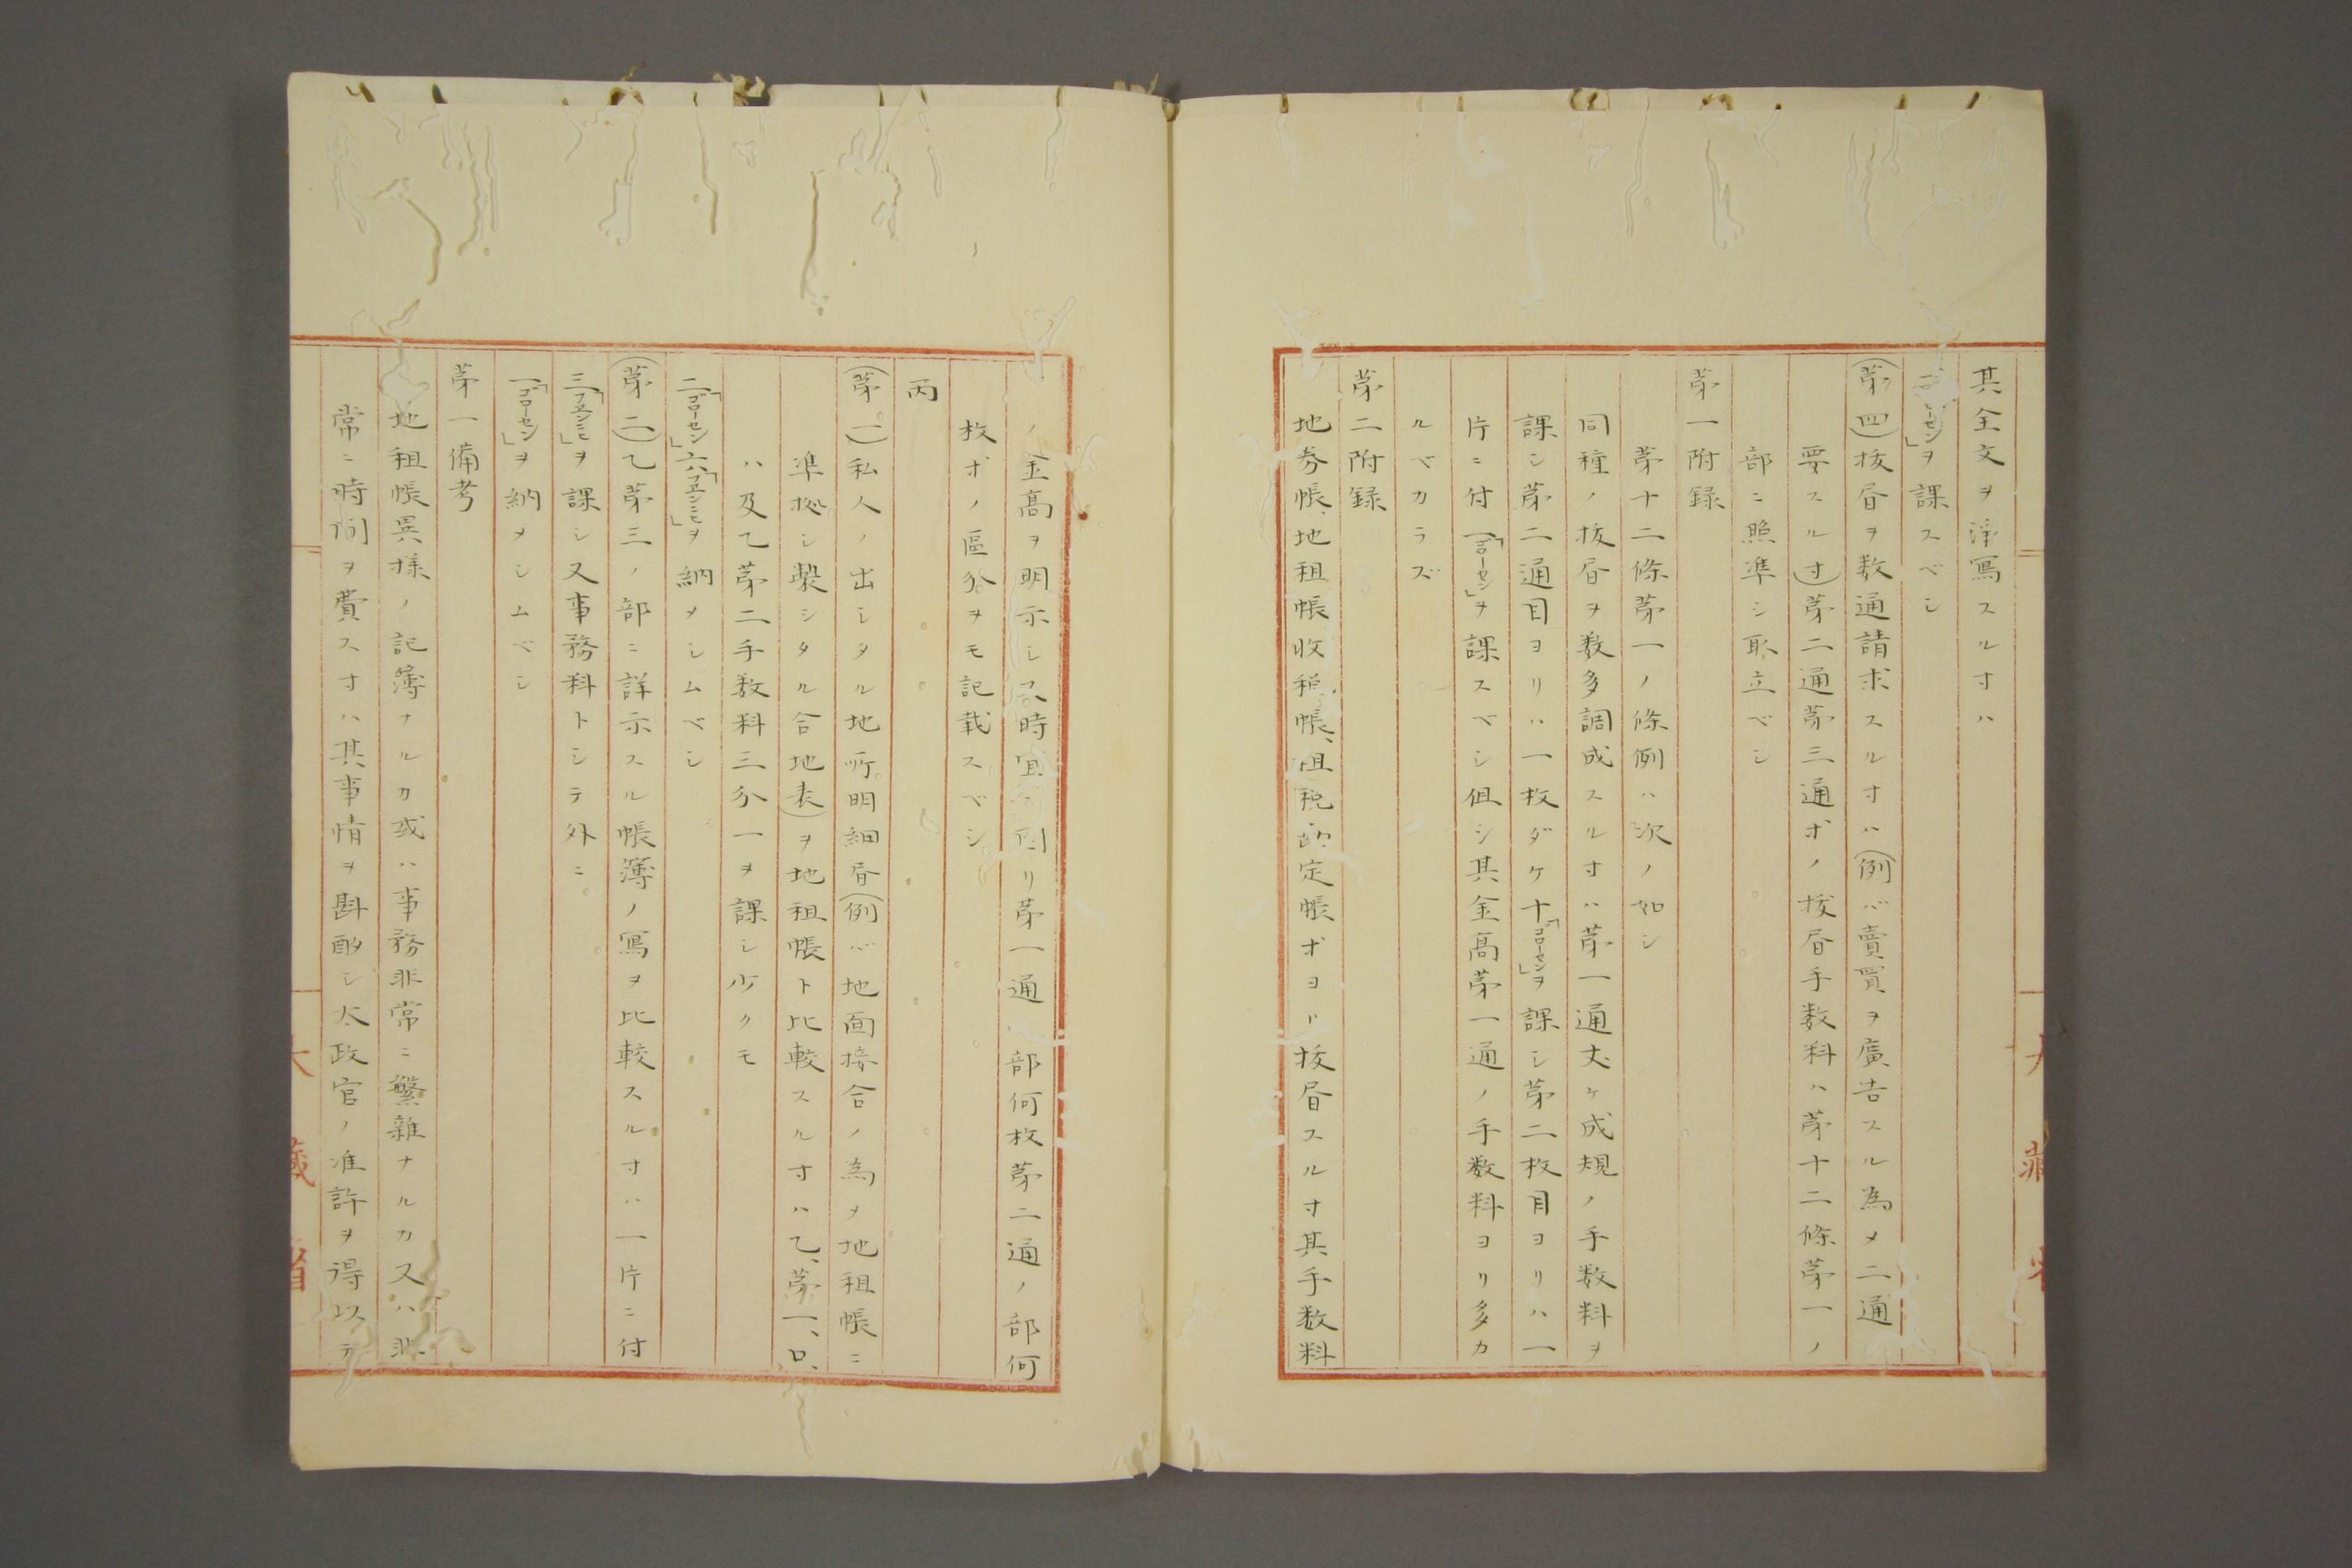 其全文ヲ浄寫スルヿハ
ーセン」ヲ課スベシ
(第四)抜昏ヲ数通請求スルヿハ(例バ賣買ヲ廣告スル為メ二通
要スルヿ)第二通第三通オノ抜昏手数料ハ第十二條第一ノ
部ニ照準シ取立ベシ
第一附録
第十二條第一ノ條例ハ次ノ如シ
同種ノ抜昏ヲ数多調成スルヿハ第一通丈ケ成規ノ手数料ヲ
課シ第二通目ヨリハ一枚ダケ十「ゴローセン」ヲ課シ第二枚目ヨリハ一
片ニ付一「ゴローセン」ヲ課スベシ但シ其金高第一通ノ手数料ヨリ多カ
ルベカラズ
第二附録
地券帳、地租帳、收税帳、租税定帳オヨリ抜昏スルヿ其手数料
ノ金高ヲ明示シ又時宜リ第一通部何枚第二通ノ部何
枚オノ區分ヲモ記載スベシ
丙
(第一)私人ノ出シタル地所明細昏(例バ地面接合ノ為メ地租帳ニ
準拠シ製シタル合地表)ヲ地租帳ト比較スルヿハ乙、第一、ロ、
ハ及乙第二手数料三分一ヲ課シ少クモ
二「ゴローセン」六「フエンニヒ」ヲ納メシムベシ
(第二)乙第三ノ部ニ詳示スル帳簿ノ寫ヲ比較スルヿハ一片ニ付
三「フエンニヒ」ヲ課シ又事務料トシテ外ニ
一「ゴローセン」ヲ納メシムベシ
第一備考
地租帳異様ノ記簿ナルカ或ハ事務非常ニ繁雜ナルカ又ハ非
常ニ時間ヲ費スヿハ其事情ヲ斟酌シ太政官ノ准許ヲ得以テ
大藏省